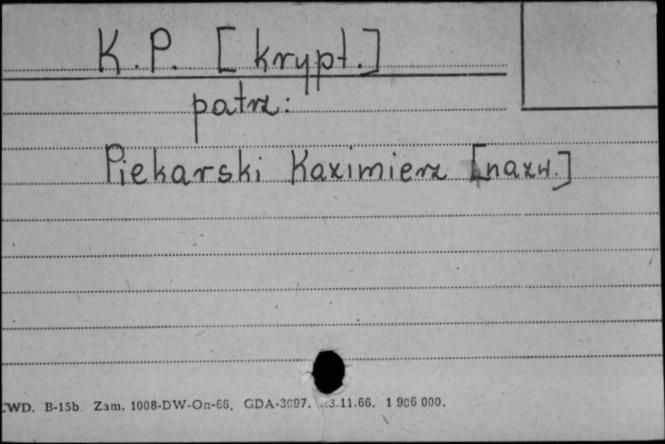 K.P. [krypt.]
patrz:
Piekarski Kazimierz [nazw.]
WD. B-15b. Zam. 1008-DW-On-66. GDA-3097. 3.11.66. 1 906 000.